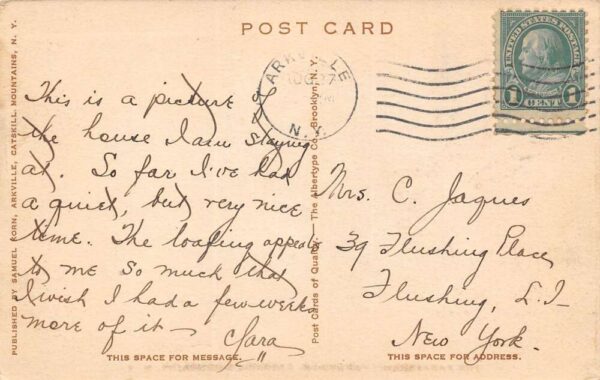 POST CARD
UNITED STATES POSTAGE
1 CENT 1
ARKVILLE
AUG 27
N.Y.
This is a picture of
the house I am staying
at. So far I've had
a quiet, but very nice
time. The loafing appeals
to me so much that
I wish I had a few weeks
more of it —
Clara
Mrs. C. Jaques
39 Flushing Place
Flushing, L.I.
New York.
THIS SPACE FOR MESSAGE.
THIS SPACE FOR ADDRESS.
PUBLISHED BY SAMUEL KORN, ARKVILLE, CATSKILL MOUNTAINS, N. Y.
Post Cards of Quality. — The Albertype Co., Brooklyn, N.Y.